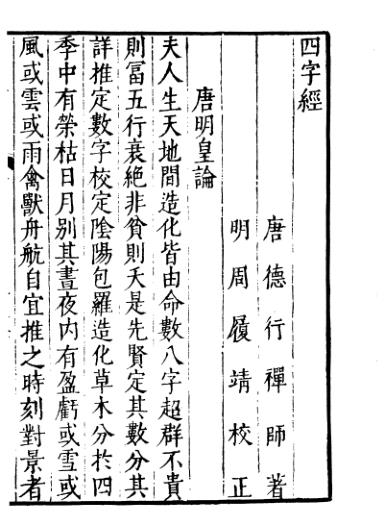 四字經
唐德行禪師著
明周履靖校正
唐明皇論
夫人生天地間造化皆由命數八字超群不貴
則富五行衰絕非貧則夭是先賢定其數分其
詳推定數字校定陰陽包羅造化草木分於四
季中有榮枯日月別其晝夜内有盈虧或雪或
風或雲或雨禽獸舟航自宜推之時刻對景者